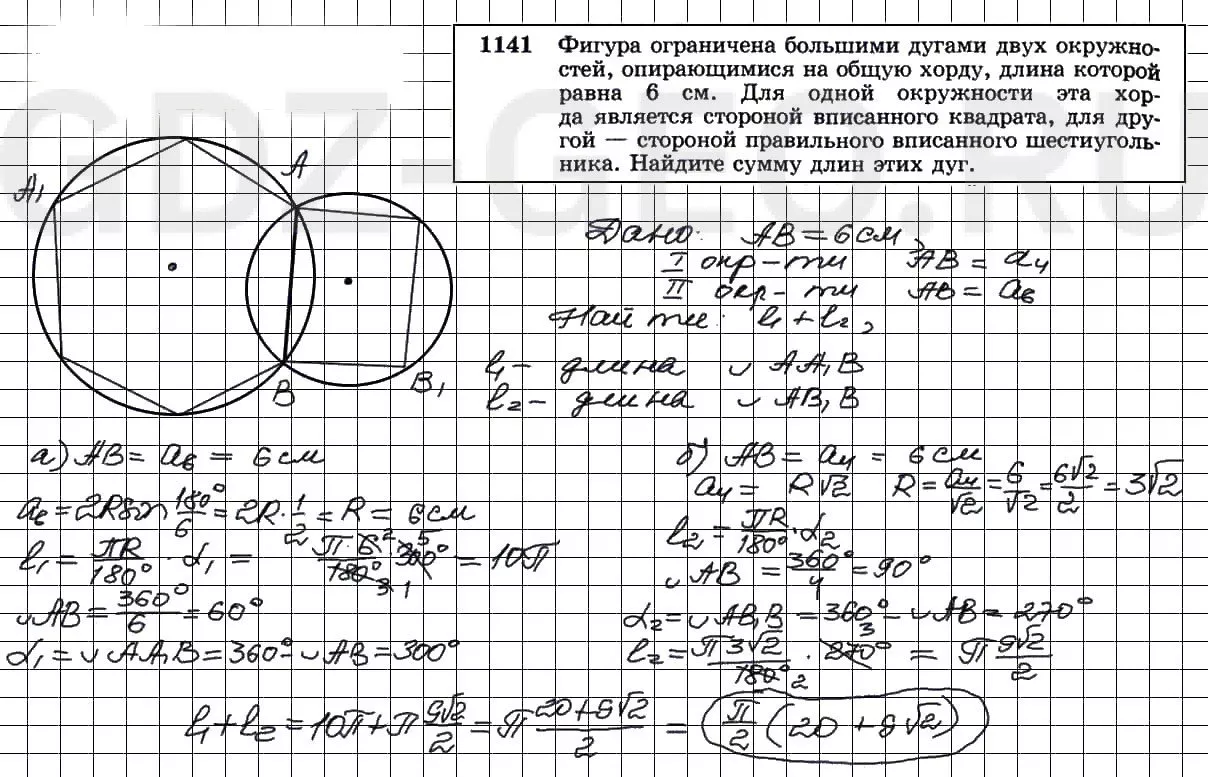 GDZ-GEO.RU
1141 Фигура ограничена большими дугами двух окружно-
стей, опирающимися на общую хорду, длина которой
равна 6 см. Для одной окружности эта хор-
да является стороной вписанного квадрата, для дру-
гой — стороной правильного вписанного шестиуголь-
ника. Найдите сумму длин этих дуг.
A₁
A
B
B₁
Дано: AB = 6 см,
I окр-ти AB = a₄
II окр-ти AB = a₆
Найти: l₁ + l₂,
l₁ – длина ◡ AA₁B
l₂ – длина ◡ AB₁B
а) AB = a₆ = 6 см
a₆ = 2R sin 180°/6 = 2R · 1/2 = R = 6 см
l₁ = πR/180° · α₁ = π·6/180° · 300° = 10π
◡AB = 360°/6 = 60°
α₁ = ◡AA₁B = 360° - ◡AB = 300°
б) AB = a₄ = 6 см
a₄ = R√2 R = a₄/√2 = 6/√2 = 6√2/2 = 3√2
l₂ = πR/180° · α₂
◡AB = 360°/4 = 90°
α₂ = ◡AB₁B = 360° - ◡AB = 270°
l₂ = π3√2/180° · 270° = π 9√2/2
l₁ + l₂ = 10π + π 9√2/2 = π 20+9√2/2 = π/2 (20 + 9√2)